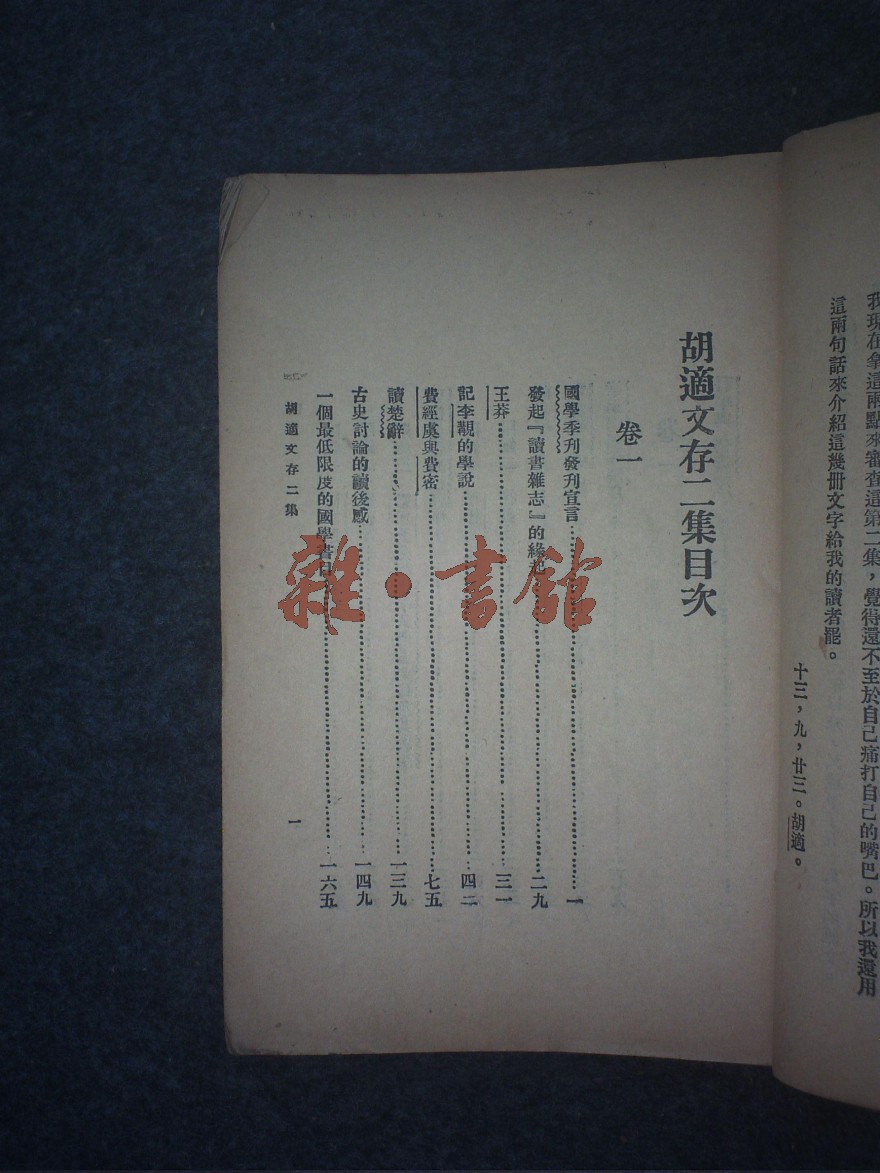 我現在拿這兩點來審查這第二集，覺得還不至於自己痛打自己的嘴巴。所以我還用
這兩句話來介紹這幾冊文字給我的讀者罷。
十三，九，廿三。胡適。
胡適文存二集目次
卷一
國學季刊發刊宣言…………一
發起『讀書雜志』的緣起…………二九
王莽…………三一
記李覯的學說…………四二
費經虞與費密…………七五
讀楚辭…………一三九
古史討論的讀後感…………一四九
一個最低限度的國學書目…………一六五
胡適文存二集
一
雜·書館